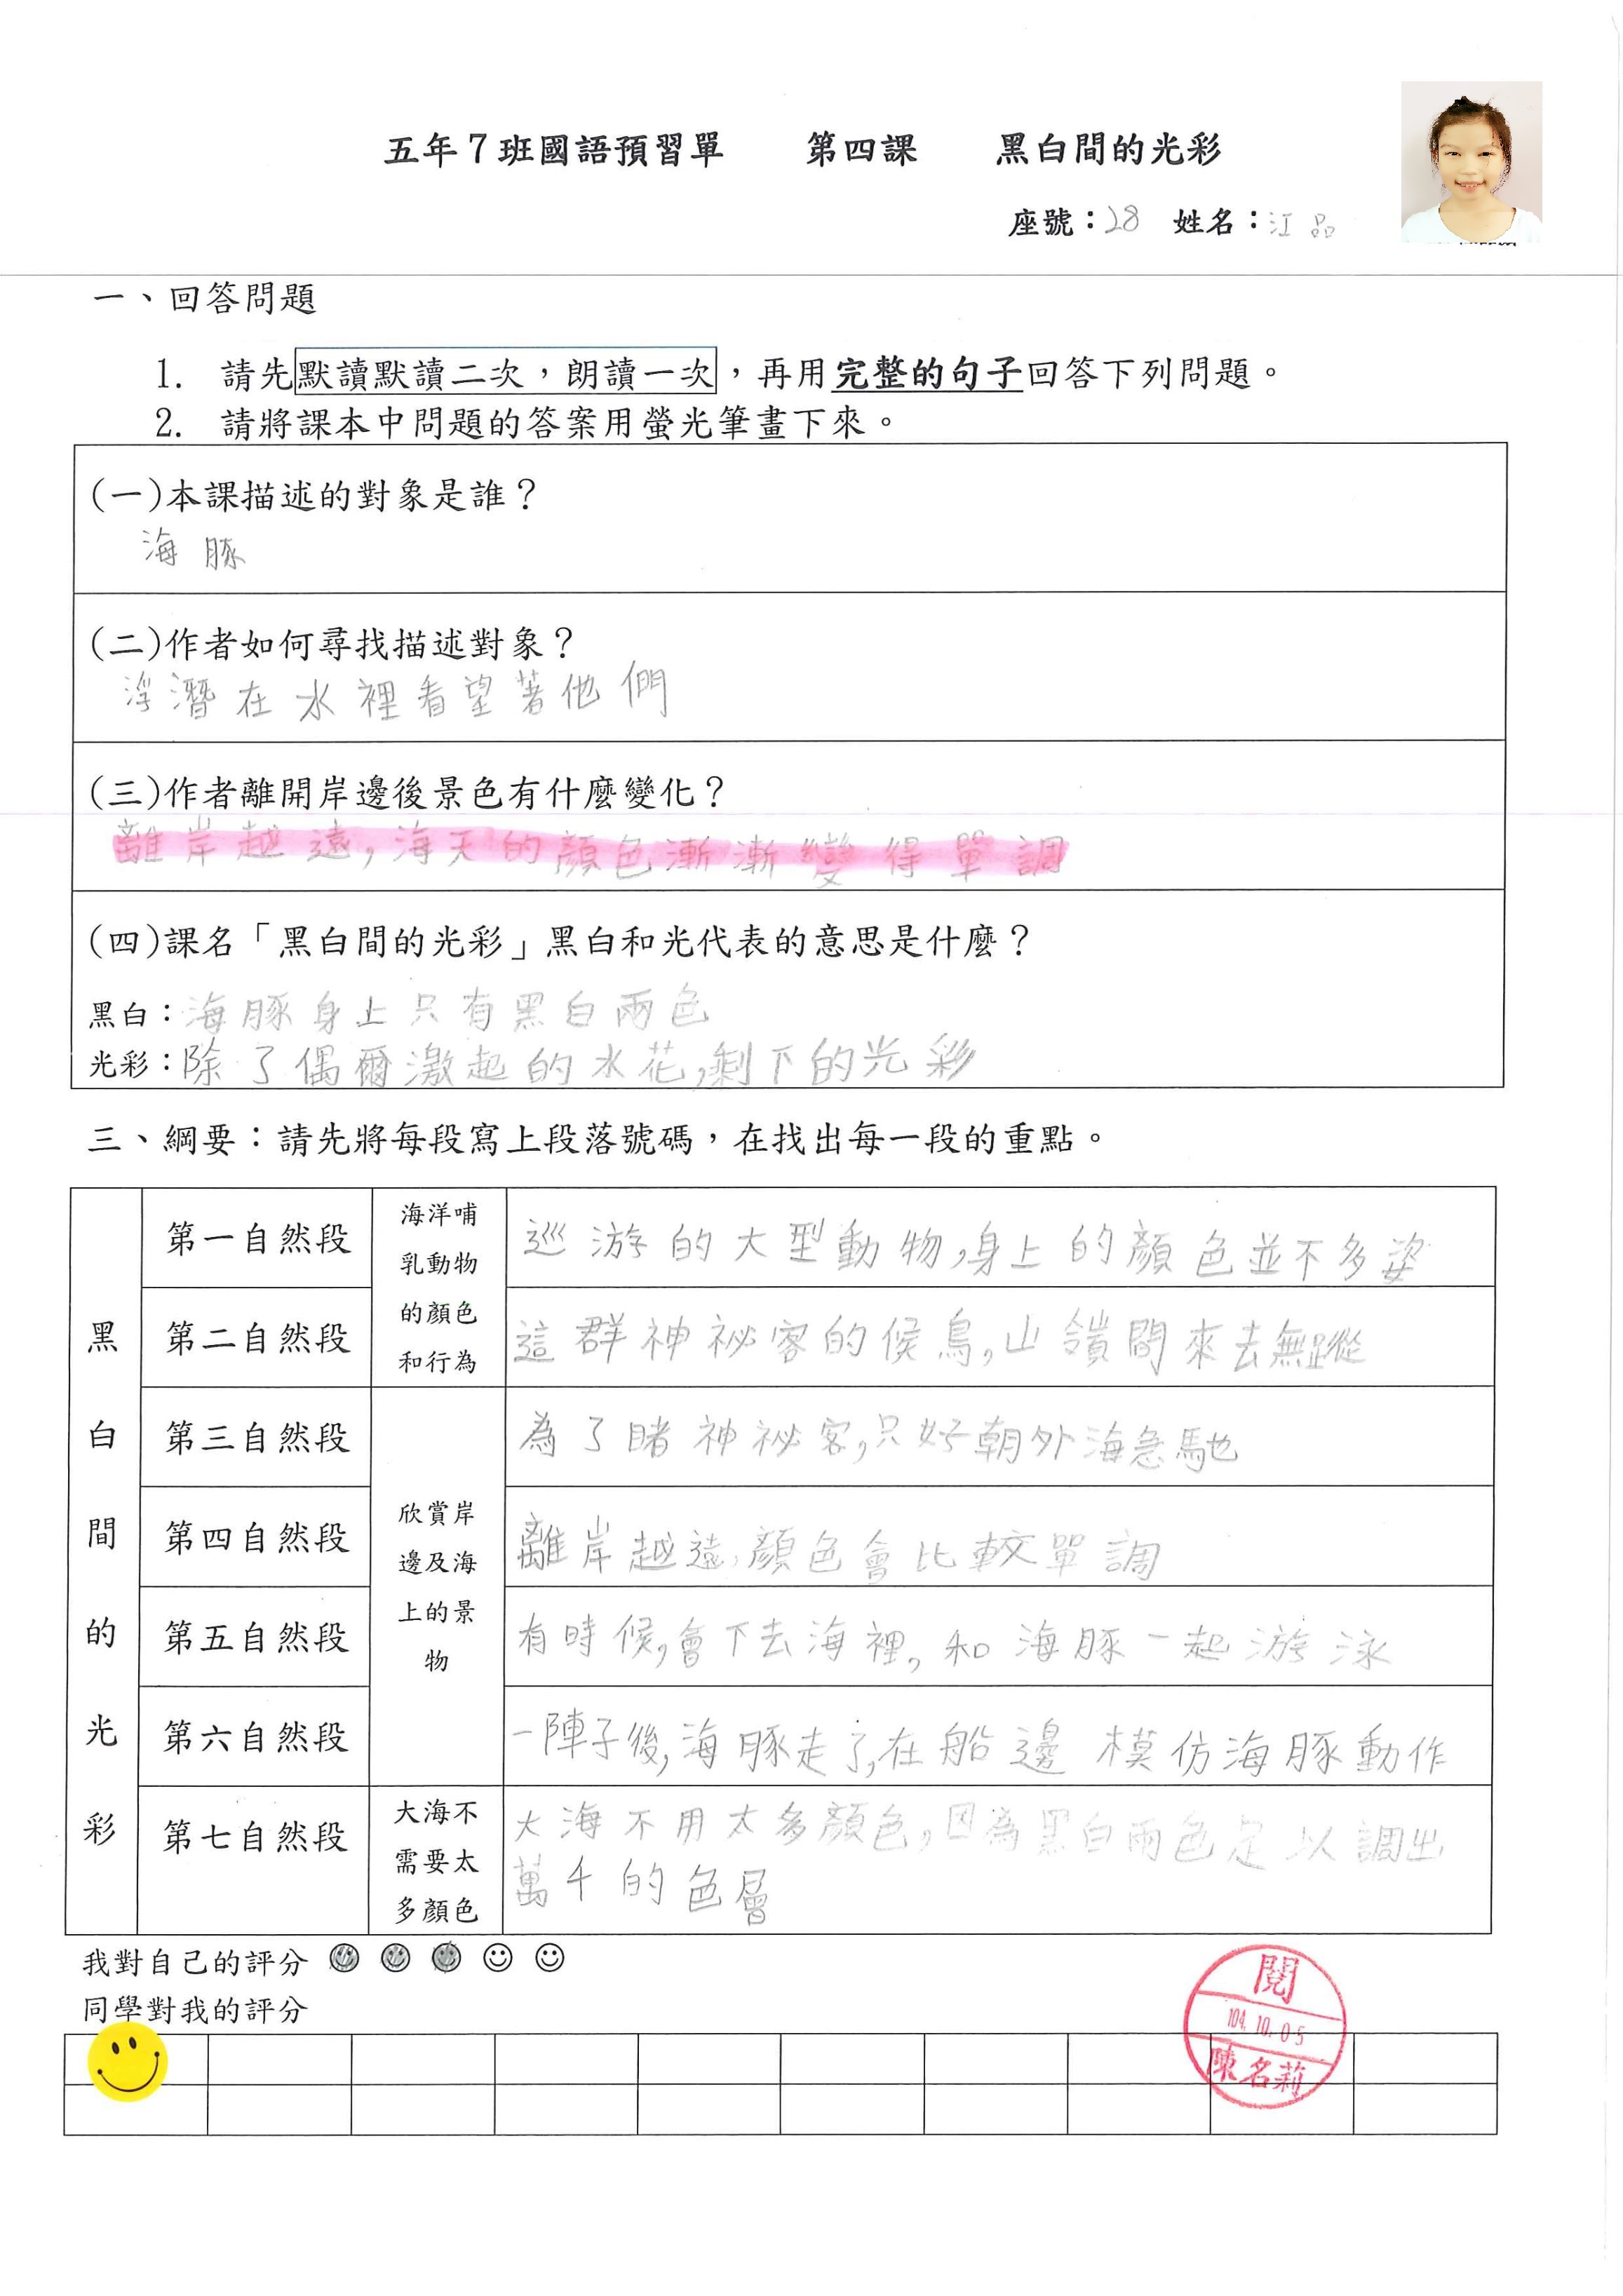 五年7班國語預習單 第四課 黑白間的光彩
座號：28 姓名：江品
一、回答問題
1. 請先默讀默讀二次，朗讀一次，再用完整的句子回答下列問題。
2. 請將課本中問題的答案用螢光筆畫下來。
(一)本課描述的對象是誰？
海豚
(二)作者如何尋找描述對象？
浮潛在水裡看望著他們
(三)作者離開岸邊後景色有什麼變化？
離岸越遠,海天的顏色漸漸變得單調
(四)課名「黑白間的光彩」黑白和光代表的意思是什麼？
黑白：海豚身上只有黑白兩色
光彩：除了偶爾激起的水花,剩下的光彩
三、綱要：請先將每段寫上段落號碼，在找出每一段的重點。
黑白間的光彩
海洋哺
乳動物
的顏色
和行為
第一自然段
巡游的大型動物,身上的顏色並不多姿
第二自然段
這群神祕客的候鳥,山嶺間來去無蹤
欣賞岸
邊及海
上的景
物
第三自然段
為了睹神祕客,只好朝外海急馳
第四自然段
離岸越遠,顏色會比較單調
第五自然段
有時候,會下去海裡,和海豚一起游泳
第六自然段
一陣子後,海豚走了,在船邊模仿海豚動作
第七自然段
大海不
需要太
多顏色
大海不用太多顏色,因為黑白兩色足以調出
萬千的色層
我對自己的評分
同學對我的評分
閱
104.10.05
陳名莉